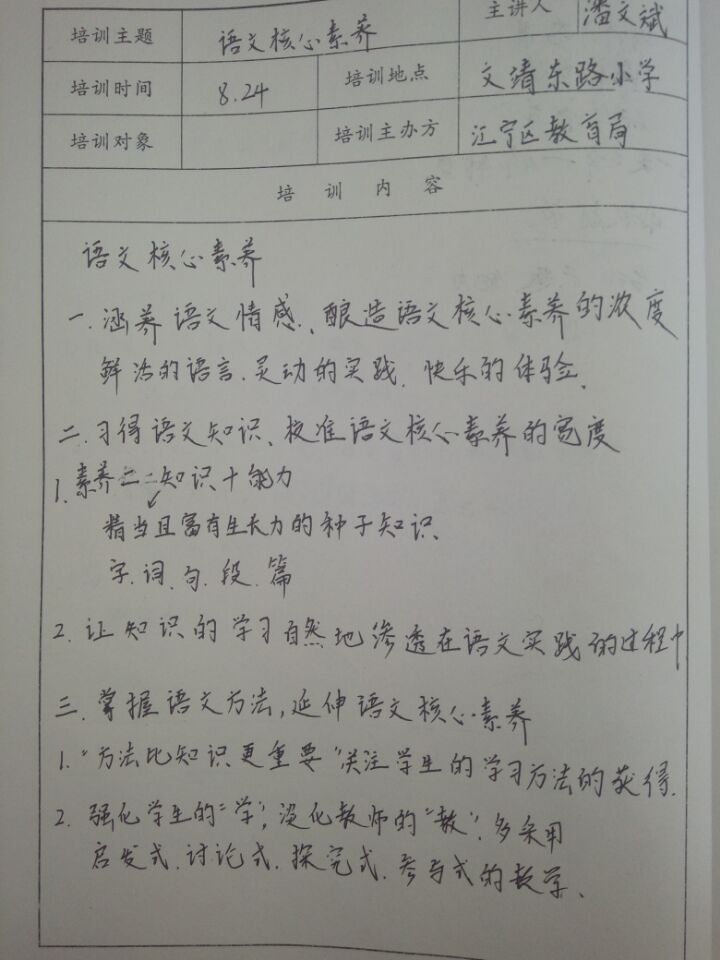 培训主题 语文核心素养 主讲人 潘文斌
培训时间 8.24 培训地点 文靖东路小学
培训对象 培训主办方 江宁区教育局
培训内容
语文核心素养
一.涵养语文情感、酿造语文核心素养的浓度
鲜活的语言、灵动的实践、快乐的体验、
二.习得语文知识、校准语文核心素养的宽度
1.素养二:知识+能力
精当且富有生长力的种子知识
字、词、句、段、篇
2.让知识的学习自然地渗透在语文实践的过程中
三.掌握语文方法,延伸语文核心素养
1."方法比知识更重要"关注学生的学习方法的获得.
2.强化学生的"学",淡化教师的"教".多采用
启发式.讨论式.探究式.参与式的教学.